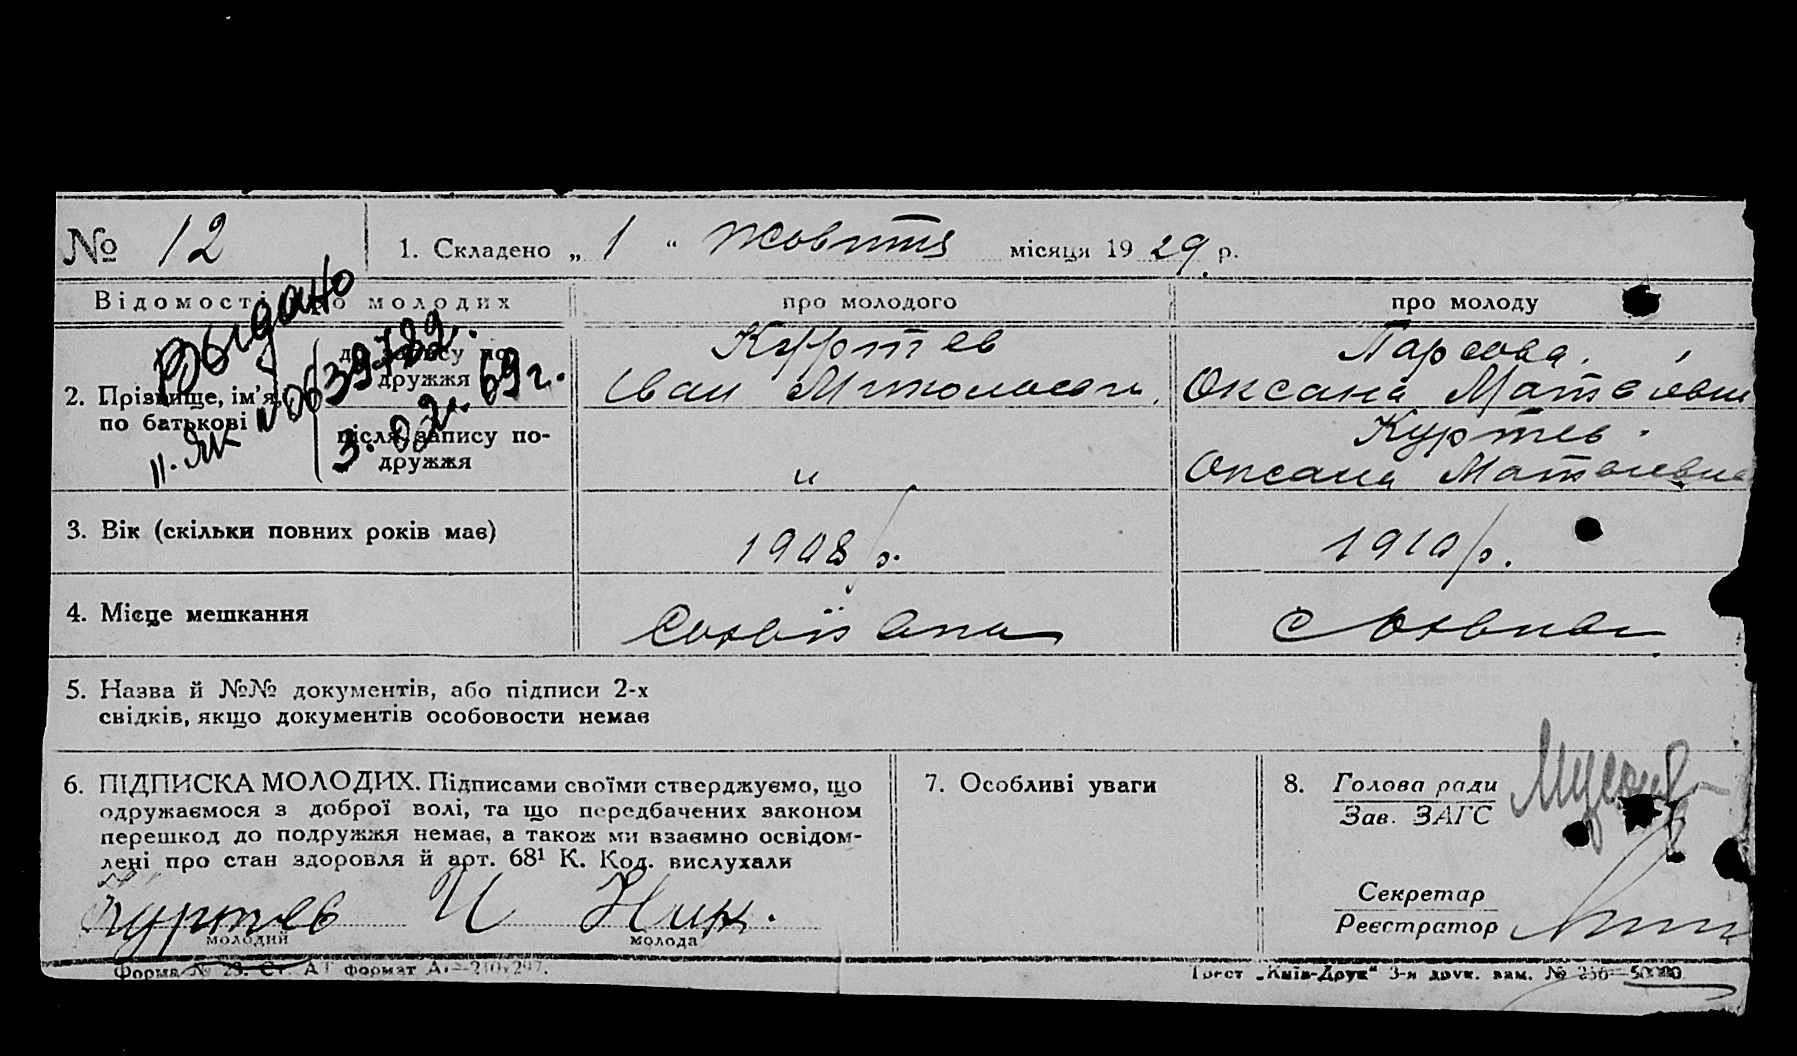 № 12
1. Складено „ 1 “ Жовтня місяця 19 29 р.
Відомості про молодих
про молодого
про молоду
2. Прізвище, ім’я, по батькові
до запису по-
дружжя
Куртев
Іван Миколаевич
Оксана Матвіевна
після запису по-
дружжя
"
Куртев
Оксана Матвіевна
Выдано
3. 02. 69 г.
3. Вік (скільки повних років має)
1908 р.
1910 р.
4. Місце мешкання
5. Назва й №№ документів, або підписи 2-х
свідків, якщо документів особовости немає
6. ПІДПИСКА МОЛОДИХ. Підписами своїми стверджуємо, що
одружаємося з доброї волі, та що передбачених законом
перешкод до подружжя немає, а також ми взаємно освідом-
лені про стан здоровля й арт. 68¹ К. Код. вислухали
Куртев И Ник.
молодий
молода
7. Особливі уваги
8. Голова ради
Зав. ЗАГС
Секретар
Реєстратор
Форма № 23. Ст. АТ формат А₄—210×297.
Трест „Київ-Друк“ 3-я друк. зам. №